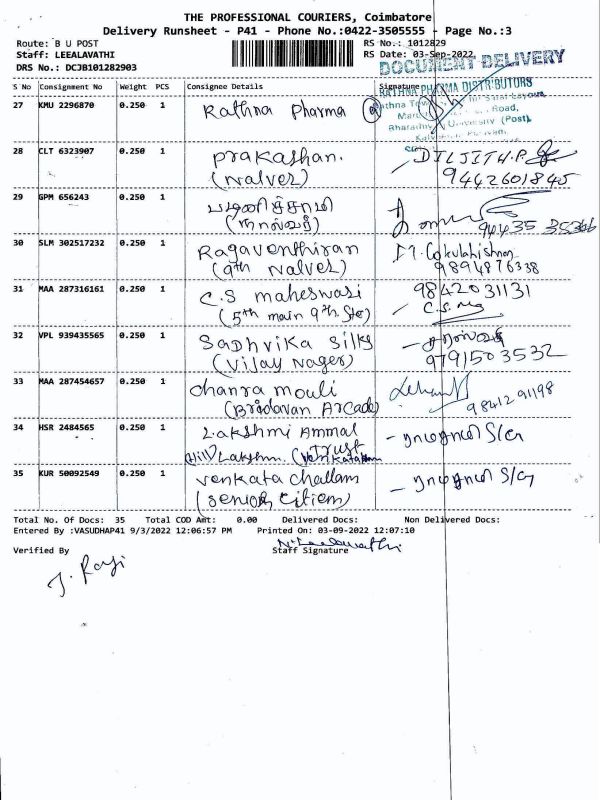 THE PROFESSIONAL COURIERS, Coimbatore
Delivery Runsheet - P41 - Phone No.:0422-3505555 - Page No.:3
Route: B U POST
RS No.: 1012829
Staff: LEEALAVATHI
RS Date: 03-Sep-2022
DRS No.: DCJB101282903
DOCUMENT DELIVERY
S No Consignment No Weight PCS Consignee Details Signature
RATHNA PHARMA DISTRIBUTORS
27 KMU 2296870 0.250 1 Rathna Pharma
Road,
University (Post),
28 CLT 6323907 0.250 1 Prakashan. DILJITH.P
(Nalver) 9442601845
29 GPM 656243 0.250 1 பழனிச்சாமி
(நால்வர்) 94435 35366
30 SLM 302517232 0.250 1 Ragaventhiran
(9th Nalver) 9894876338
31 MAA 287316161 0.250 1 C.S maheswari 9842031131
(5th main 9th Str) C.S.
32 VPL 939435565 0.250 1 Sadhvika Silks
(Vijay Nager) 9791503532
33 MAA 287454657 0.250 1 Chanra mouli
(Bridavan Arcade) 98412 91198
34 HSR 2484565 0.250 1 Lakshmi Ammal
Trust
Hill Lakshmi. S/G
35 KUR 50092549 0.250 1 Venkata Challam S/G
(Senior Citiem)
Total No. Of Docs: 35 Total COD Amt: 0.00 Delivered Docs: Non Delivered Docs:
Entered By :VASUDHAP41 9/3/2022 12:06:57 PM Printed On: 03-09-2022 12:07:10
N. Leelavathi
Verified By Staff Signature
J. Raji